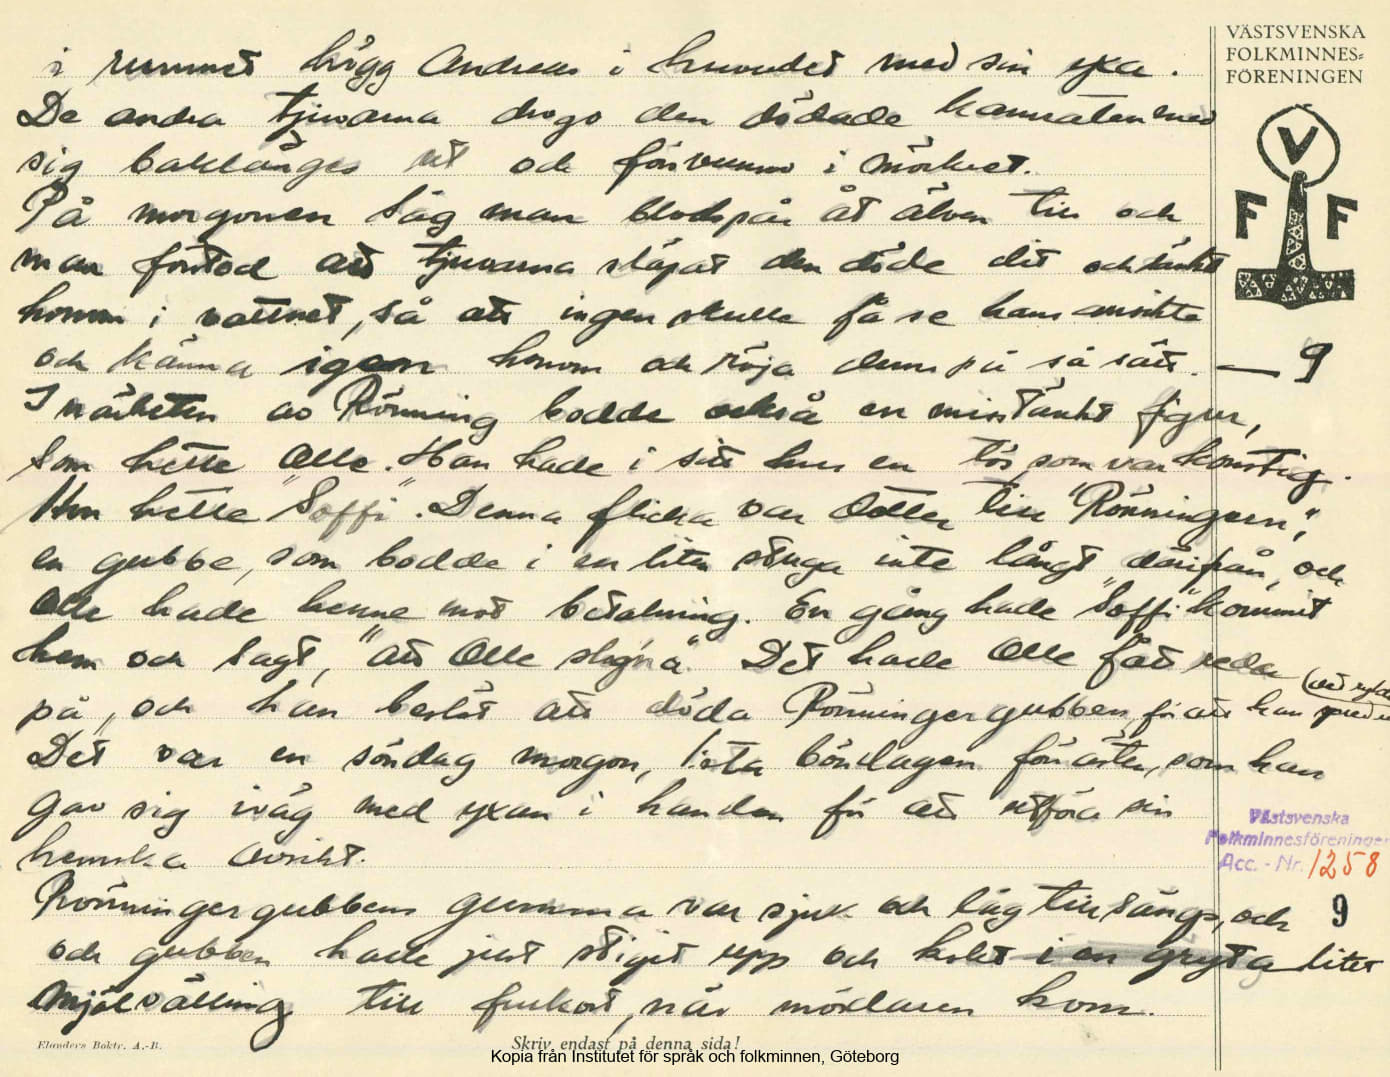 VÄSTSVENSKA
FOLKMINNES=
FÖRENINGEN
V
F F
i rummet högg Andreas i huvudet med sin yxa.
De andra tjuvarna drogo den dödade kamraten med
sig baklänges ut och försvunno i mörkret.
På morgonen såg man blodspår åt älven till och
man förstod att tjuvarna släpat den döde dit och sänkt
honom i vattnet, så att ingen skulle få se hans ansikte
och känna igen honom och röja dem på så sätt. — 9
I närheten av Rönning bodde också en misstänkt figur,
som hette Olle. Han hade i sitt hus en tös som var konstig.
Hon hette "Soffi". Denna flicka var dotter till "Rönningern",
en gubbe, som bodde i en liten stuga inte långt därifrån, och
Olle hade henne mot betalning. En gång hade "Soffi" kommit
hem och sagt, "att Olle slog'na". Det hade Olle fått reda
på, och han beslöt att döda Rönningergubben, för att han
Det var en söndag morgon, sista böndagen för året, som han
gav sig iväg med yxan i handen för att utföra sin
hemska avsikt.
Rönningergubbens gumma var sjuk och låg till sängs, och
och gubben hade just stiget upp och kokt i en gryta litet
mjölvälling till frukost, när mördaren kom.
Västsvenska
Folkminnesföreningen
Acc. - Nr. 1258
9
Elanders Boktr. A.-B.
Skriv endast på denna sida!
Kopia från Institutet för språk och folkminnen, Göteborg